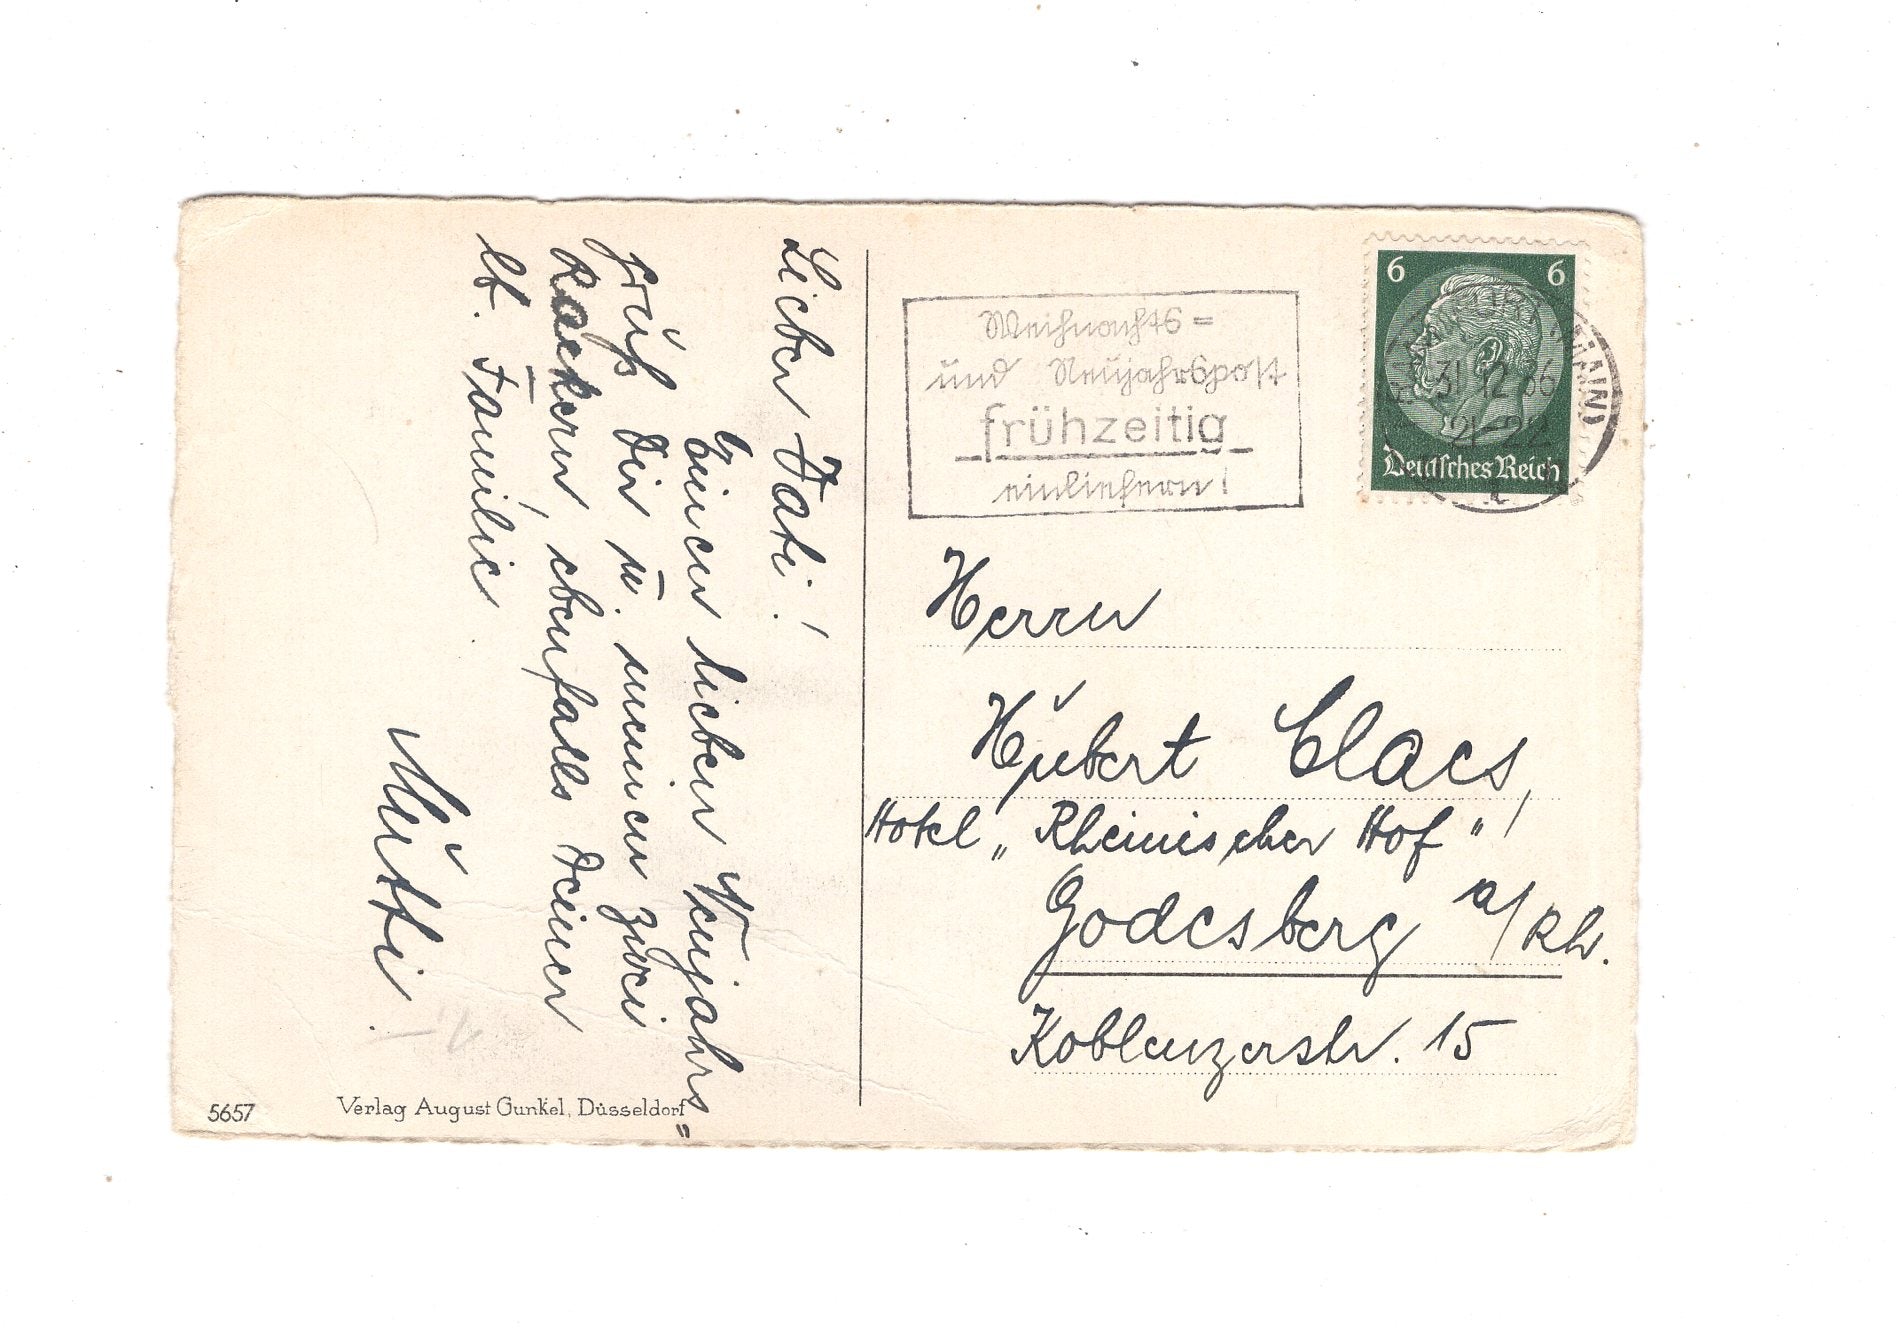 Lieber Vati!
Einen lieben Neujahrs=
gruß Dir u. meinen zwei
Rackern, ebenfalls Deiner
lb. Familie.
Mutti.
5657
Verlag August Gunkel, Düsseldorf
Weihnachts=
und Neujahrspost
frühzeitig
einliefern!
6 6
(MAIN)
31.12.36
21-22
Deutsches Reich
Herrn
Hubert Claes,
Hotel „Rheinischer Hof"!
Godesberg a/Rh.
Koblenzerstr. 15